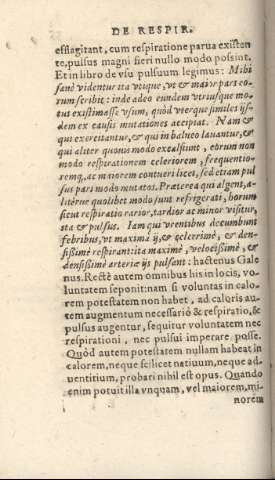 DE RESPIR.
efflagitant, cum respiratione parua existen
te, pulsus magni fieri nullo modo possint.
Et in libro de vsu pulsuum legimus: Mihi
sanè videntur ita vtique, vt & maior pars eo-
rum scribit: inde adeo eundem vtriusque mo-
tus existimasse vsum, quòd vterque similes ijs-
dem ex causis mutationes accipiat. Nam &
qui exercitantur, & qui in balneo lauantur, &
qui aliter quouis modo excalfiunt, eorum non
modò respirationem celeriorem, frequentio-
remq́, ac maiorem contueri licet, sed etiam pul
sus pari modo mutatos. Praeterea qui algent, a-
litérue quolibet modo sunt refrigerati, horum
sicut respiratio rarior, tardior ac minor visitur,
ita & pulsus. Iam qui vrentibus decumbunt
febribus, vt maximè ij, & celerrimè, & den-
sissimè respirant: ita maximè, velocissimè, &
densissimè arteriae ijs pulsant: hactenus Gale
nus. Rectè autem omnibus his in locis, vo-
luntatem seponit: nam si voluntas in calo-
rem potestatem non habet, ad caloris au-
tem augmentum necessariò & respiratio, &
pulsus augentur, sequitur voluntatem nec
respirationi, nec pulsui imperare posse.
Quòd autem potestatem nullam habeat in
calorem, neque scilicet natiuum, neque ad-
uentitium, probari nihil est opus. Quando
enim potuit illa vnquam, vel maiorem, mi-
norém